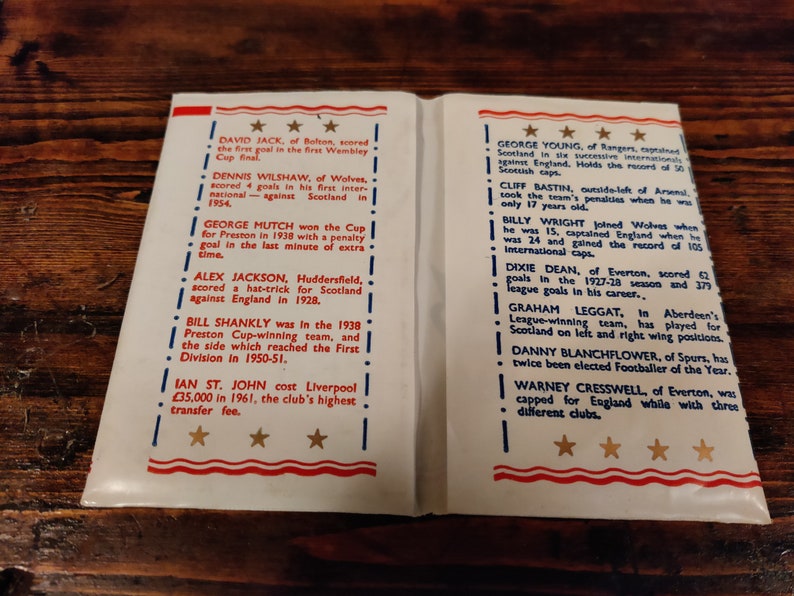 DAVID JACK, of Bolton, scored
the first goal in the first Wembley
Cup final.
DENNIS WILSHAW, of Wolves,
scored 4 goals in his first inter-
national — against Scotland in
1954.
GEORGE MUTCH won the Cup
for Preston in 1938 with a penalty
goal in the last minute of extra
time.
ALEX JACKSON, Huddersfield,
scored a hat-trick for Scotland
against England in 1928.
BILL SHANKLY was in the 1938
Preston Cup-winning team, and
the side which reached the First
Division in 1950-51.
IAN ST. JOHN cost Liverpool
£35,000 in 1961, the club's highest
transfer fee.
GEORGE YOUNG, of Rangers, captained
Scotland in six successive internationals
against England. Holds the record of 50
Scottish caps.
CLIFF BASTIN, outside-left of Arsenal,
took the team's penalties when he was
only 17 years old.
BILLY WRIGHT joined Wolves when
he was 15, captained England when he
was 24 and gained the record of 105
international caps.
DIXIE DEAN, of Everton, scored 62
goals in the 1927-28 season and 379
league goals in his career..
GRAHAM LEGGAT, in Aberdeen's
League-winning team, has played for
Scotland on left and right wing positions.
DANNY BLANCHFLOWER, of Spurs, has
twice been elected Footballer of the Year.
WARNEY CRESSWELL, of Everton, was
capped for England while with three
different clubs.